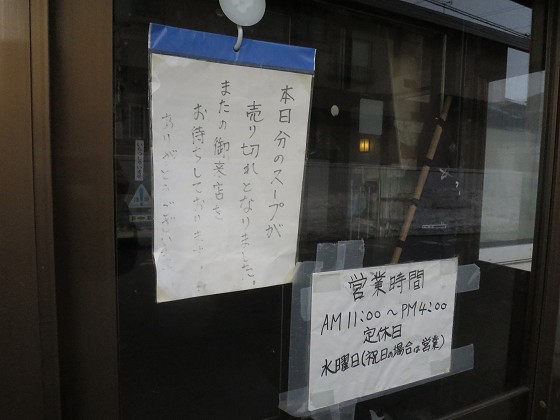 本日分のスープが
売り切れとなりました。
またの御来店を
お待ちしております。
ありがとうございました
営業時間
AM11:00～PM4:00
定休日
水曜日(祝日の場合は営業)